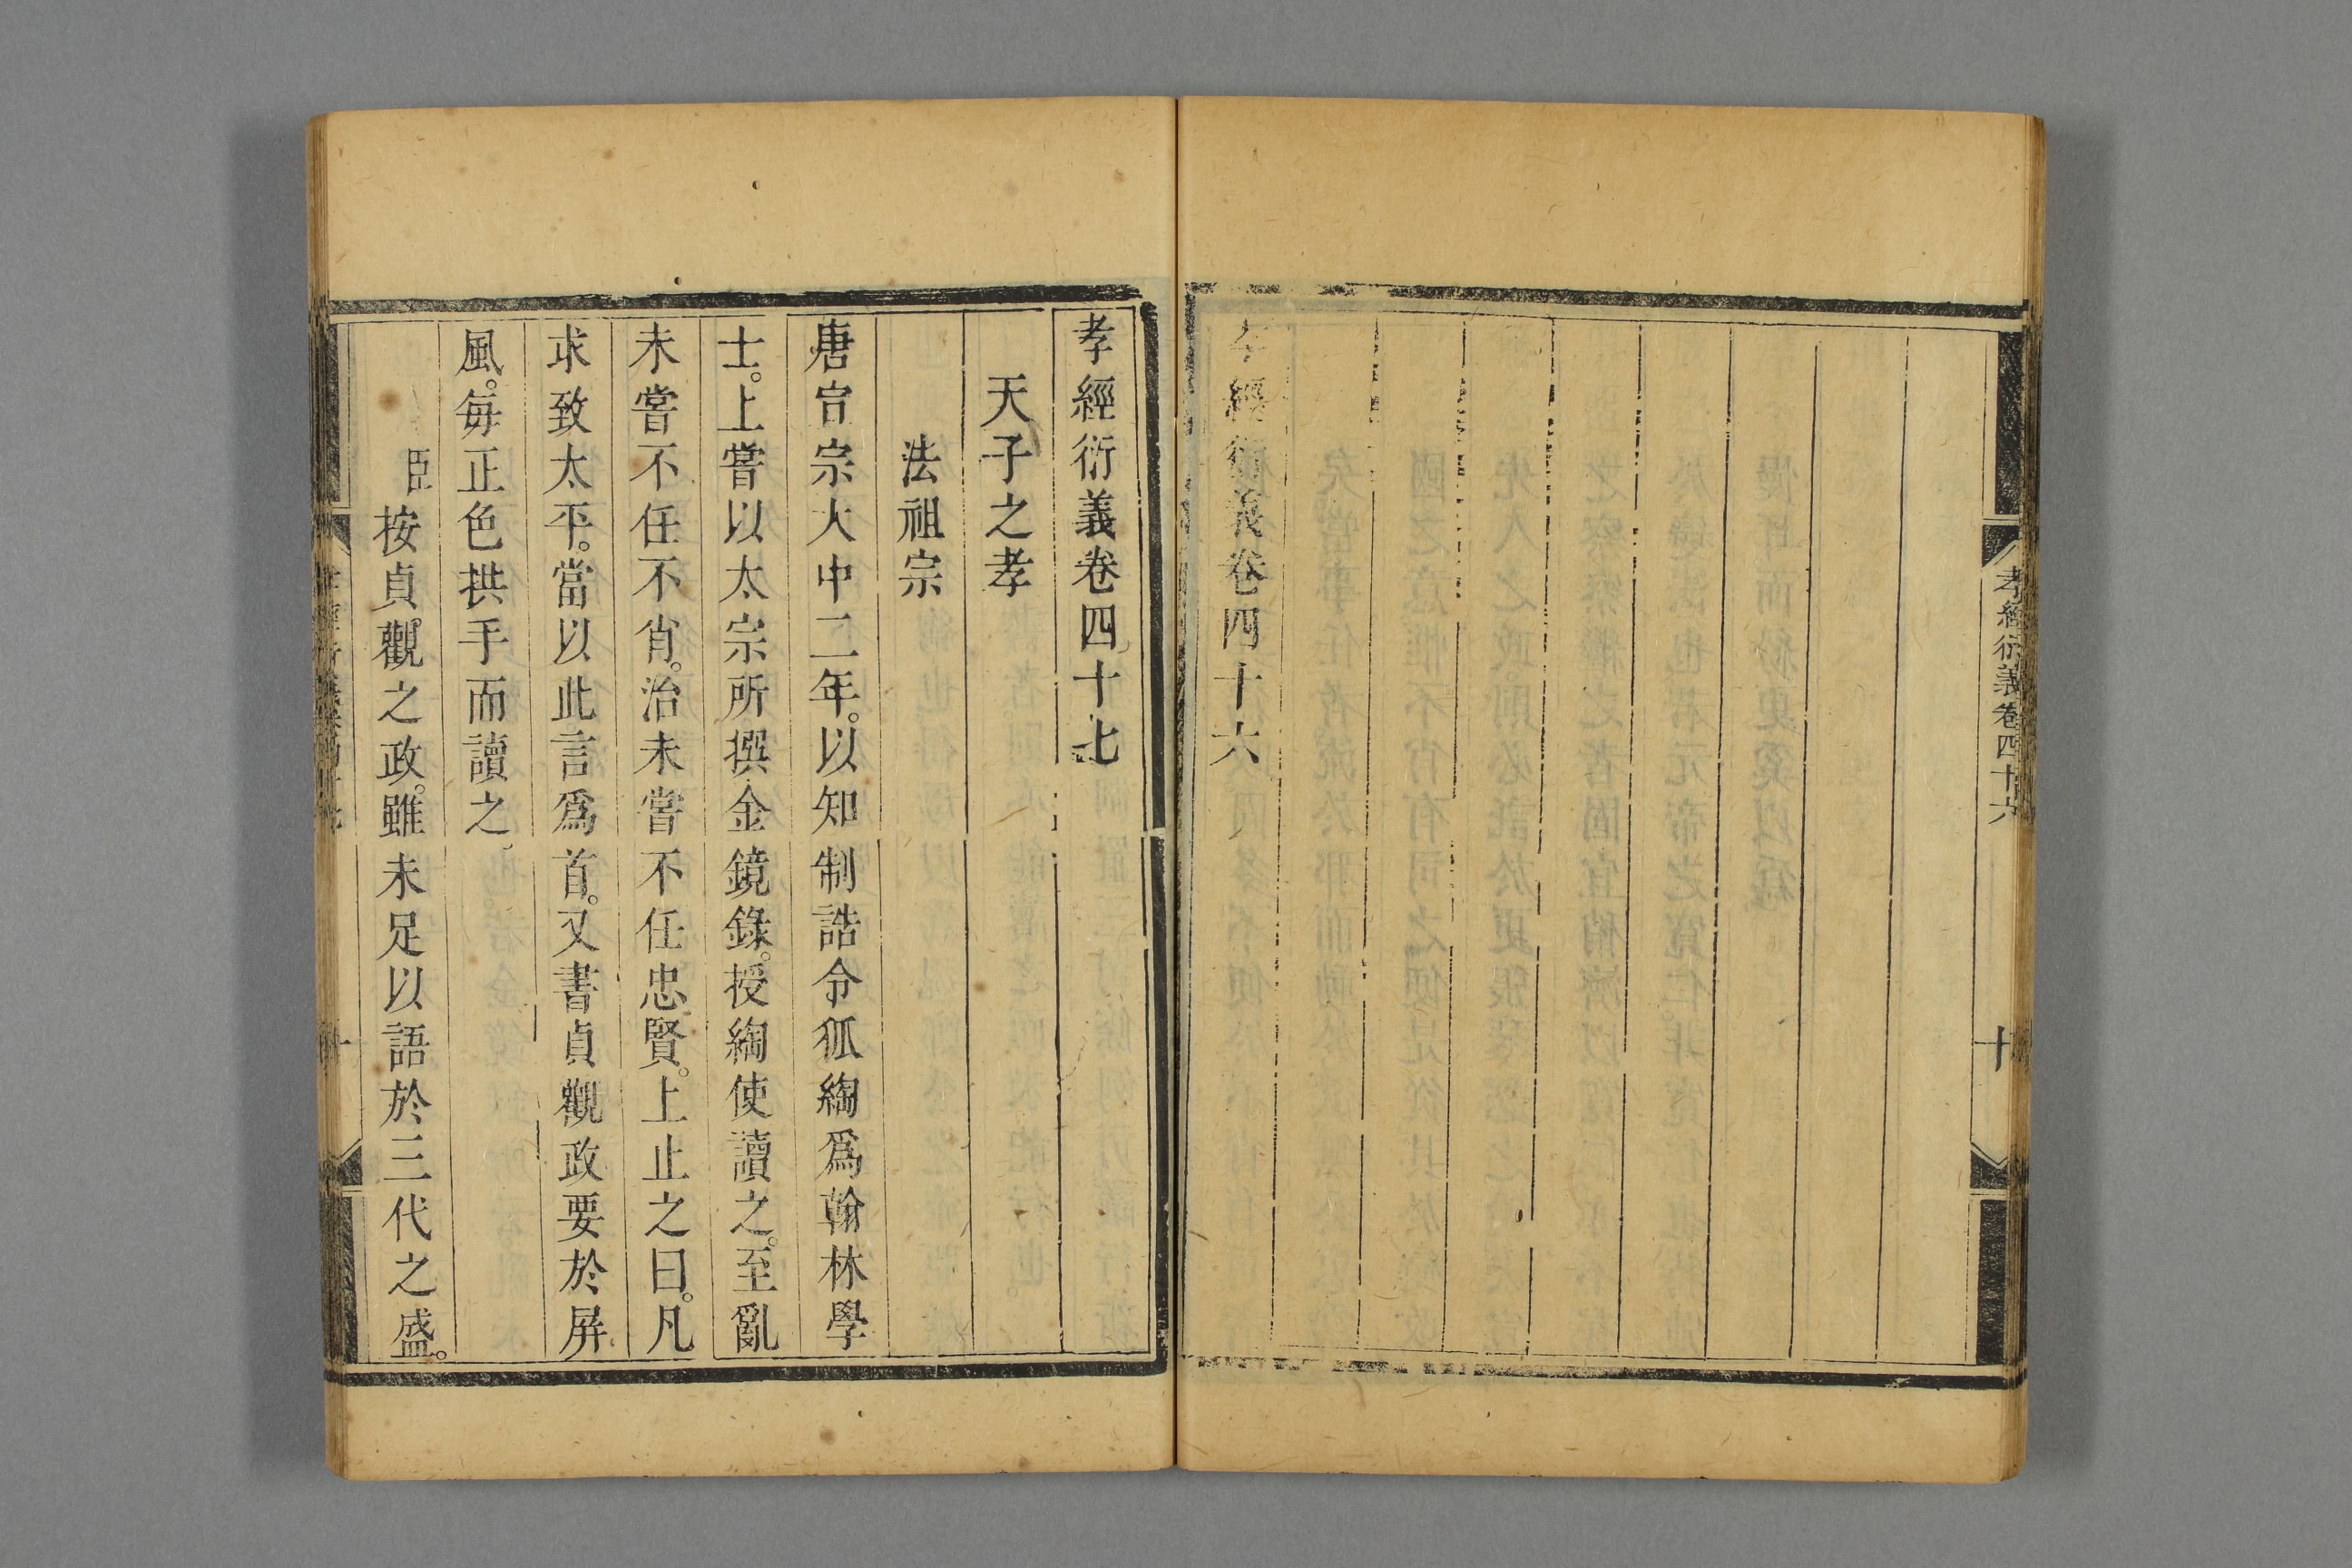 孝經衍義卷四十六
十
孝經衍義卷四十六
孝經衍義卷四十七
天子之孝
法祖宗
唐宣宗大中二年。以知制誥令狐綯爲翰林學
士。上嘗以太宗所撰金鏡錄。授綯使讀之。至亂
未嘗不任不肖。治未嘗不任忠賢。上止之曰。凡
求致太平。當以此言爲首。又書貞觀政要於屏
風。每正色拱手而讀之。
臣按貞觀之政。雖未足以語於三代之盛。